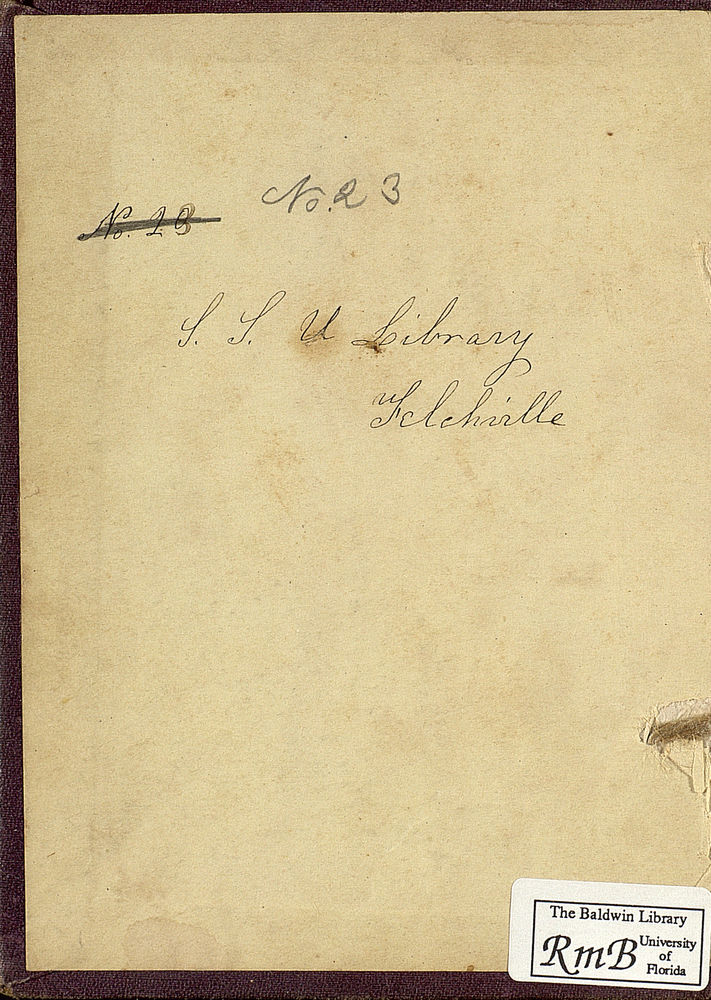 No. 23
No. 23
S. S. U Library
Felchville
The Baldwin Library
RmB University
of
Florida